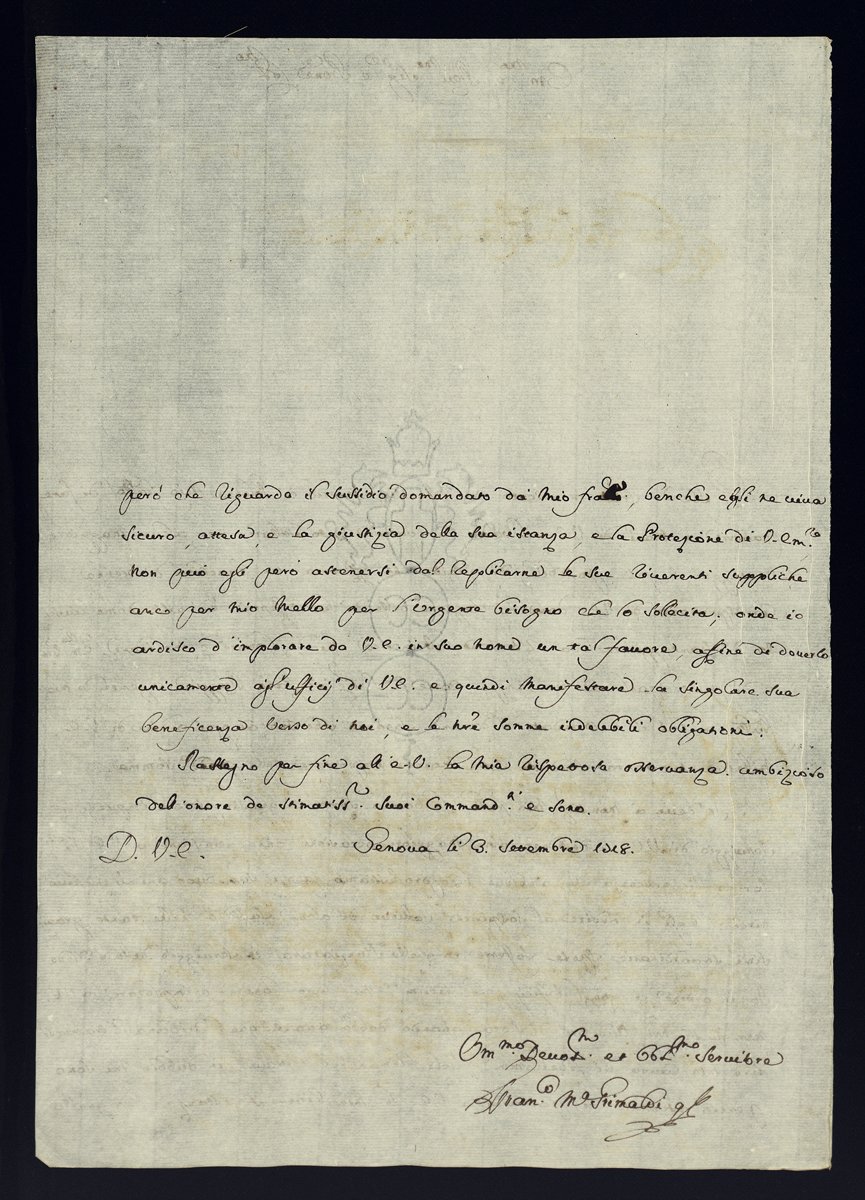 però che riguarda il sussidio domandato da mio fra[tel]lo, benche egli ne viva
sicuro, attesa, e la giustizia della sua istanza, e la Protezione di V. Em.za
non può egli però astenersi dal repplicarne le sue riverenti suppliche
anco per mio mezzo per l'urgente bisogno che lo sollecita; onde io
ardisco d'implorare da V.E. in suo nome un tal favore, affine di doverlo
unicamente agl'ufficij di V.E. e quindi manifestare la singolare sua
beneficenza verso di noi, e le nr̃e somme indelebili obligationi.
Rassegno per fine all'E.V. la mia rispettosa osservanza ambizioso
dell'onore de stimatiss.mi suoi Command.ti e sono.
D. V.E.
Genova li 3. Settembre
Um.mo Devot.mo et Obl.mo Servitore
Fran.co M.a Grimaldi